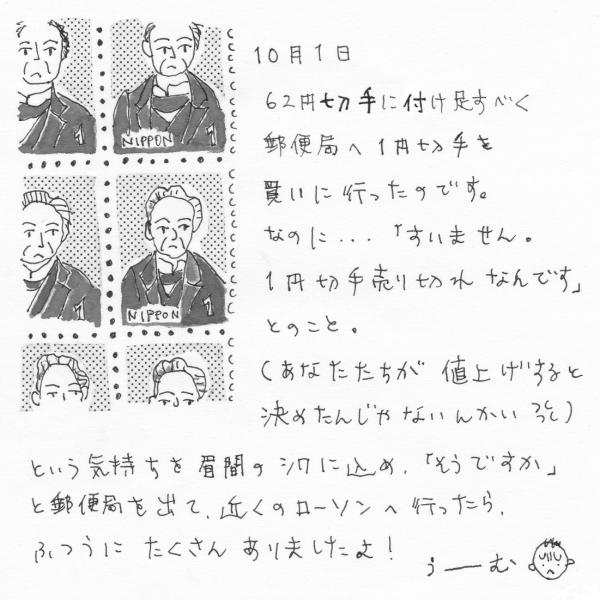 10月1日
62円切手に付け足すべく
郵便局へ1円切手を
買いに行ったのです。
なのに...「すいません。
1円切手売り切れ なんです」
とのこと。
(あなたたちが 値上げすると
決めたんじゃないんかい)
という気持ちを眉間のシワに込め、「そうですか」
と郵便局を出て、近くのローソンへ行ったら、
ふつうに たくさん ありましたよ!
うーむ
1
NIPPON 1
1
NIPPON 1